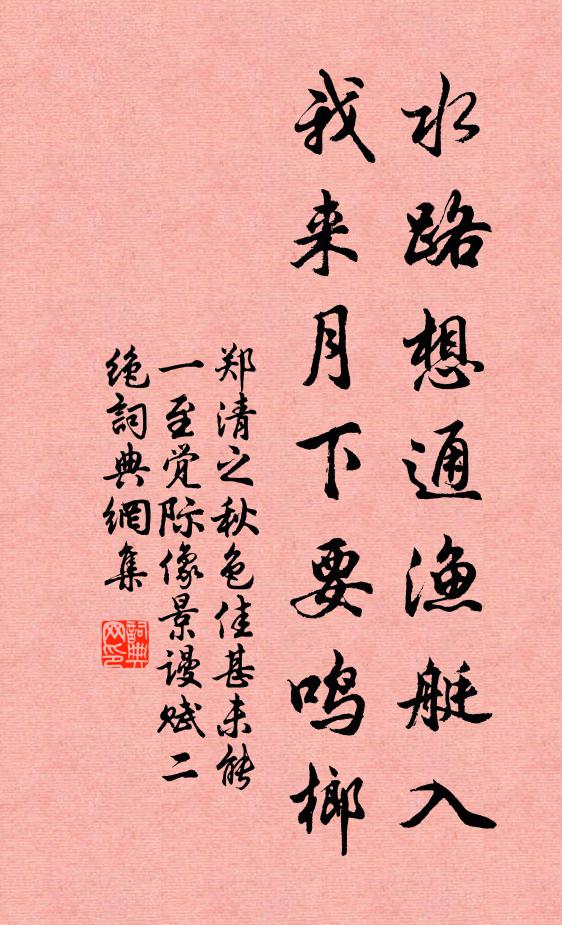 水路想通渔艇入
我来月下要鸣榔
郑清之秋色佳甚未能
一至觉际像景谩赋二
绝詞典網集
詞典网印